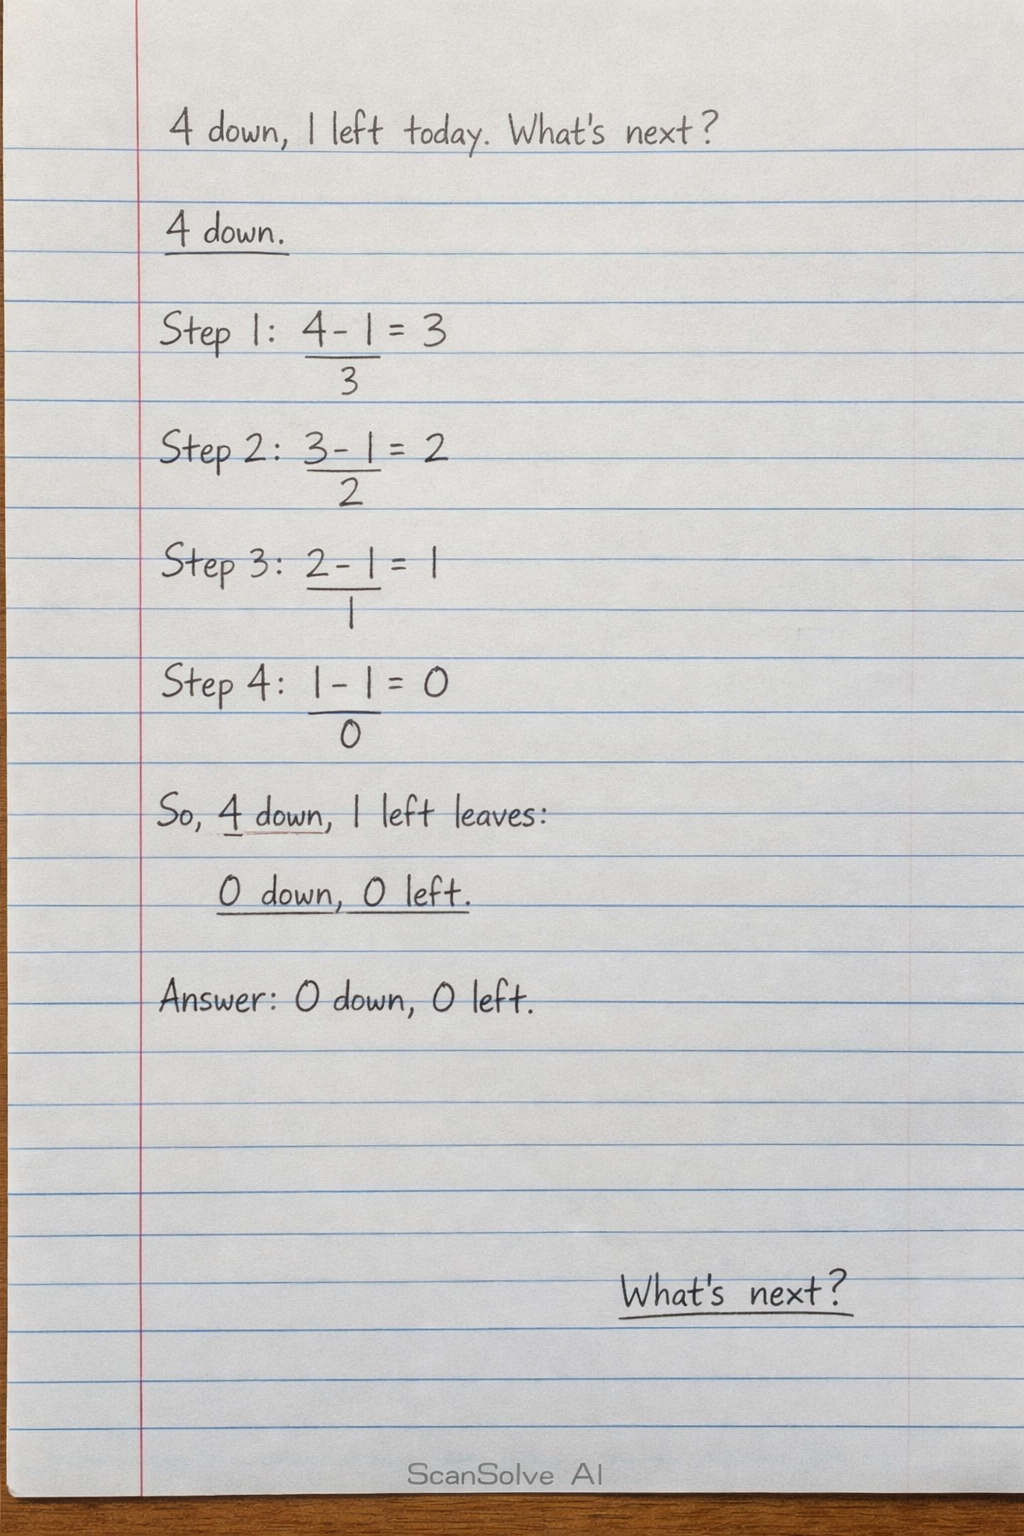 4 down, 1 left today. What's next?
4 down.
Step 1: 4 - 1 = 3
3
Step 2: 3 - 1 = 2
2
Step 3: 2 - 1 = 1
1
Step 4: 1 - 1 = 0
0
So, 4 down, 1 left leaves:
0 down, 0 left.
Answer: 0 down, 0 left.
What's next?
ScanSolve AI